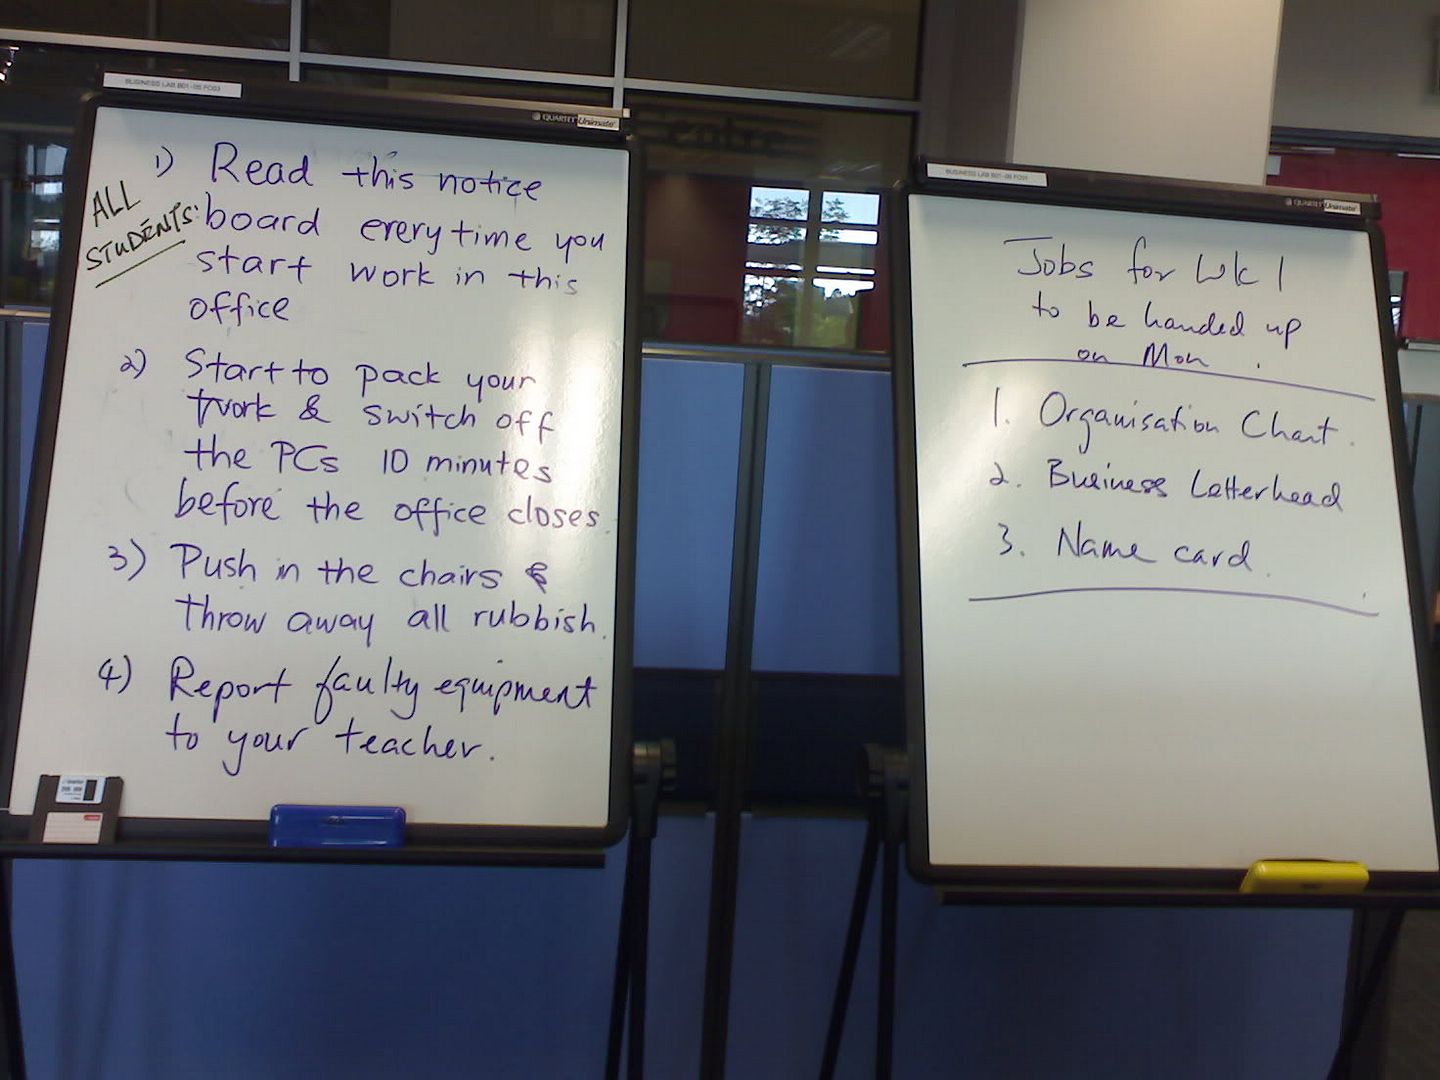 BUSINESS LAB B01-05 FC03
QUARTET Unimate
ALL
STUDENTS:
1) Read this notice
board every time you
start work in this
office
2) Start to pack your
work & switch off
the PCs 10 minutes
before the office closes.
3) Push in the chairs &
throw away all rubbish.
4) Report faulty equipment
to your teacher.
BUSINESS LAB B01-05
QUARTET Unimate
Jobs for Wk 1
to be handed up
on Mon.
1. Organisation Chart.
2. Business Letterhead
3. Name card.